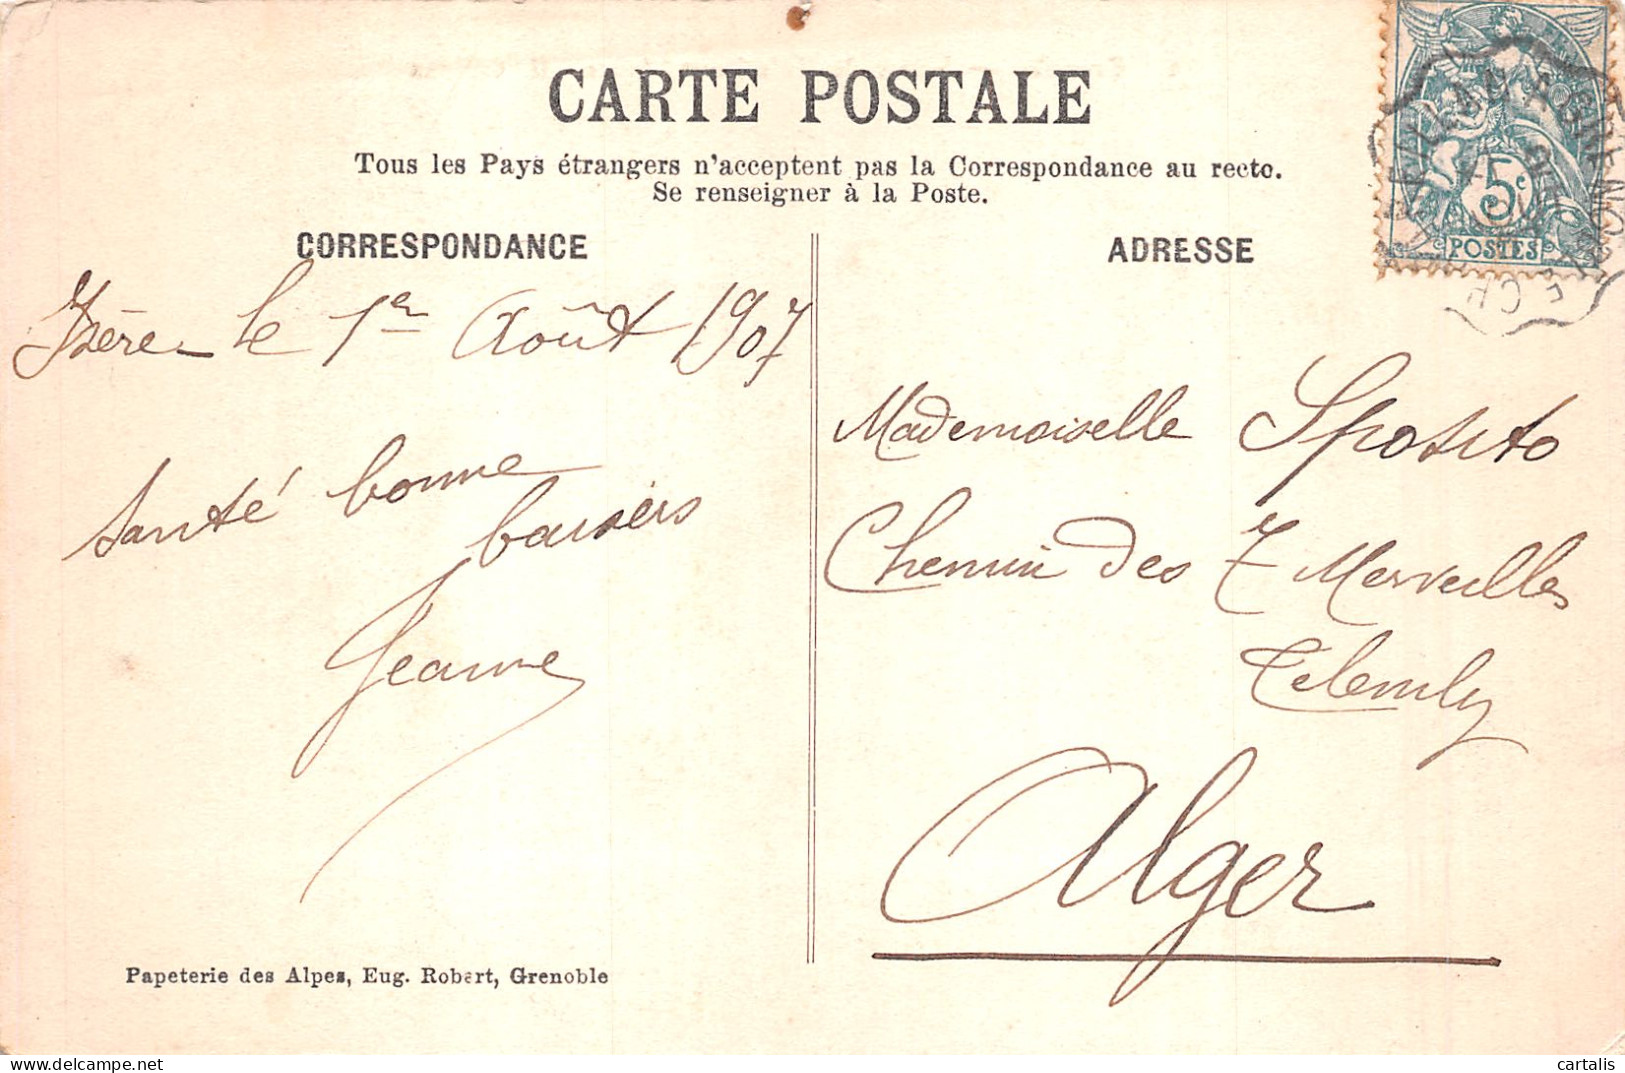 CARTE POSTALE
Tous les Pays étrangers n'acceptent pas la Correspondance au recto.
Se renseigner à la Poste.
CORRESPONDANCE
Isère le 1er Août 1907
Santé bonne
baisers
Jeanne
Papeterie des Alpes, Eug. Robert, Grenoble
ADRESSE
5c
POSTES
Mademoiselle Sposito
Chemin des 7 Merveilles
Telemly
Alger
cartalis